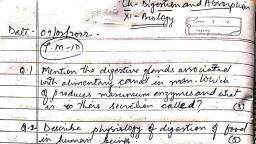 Ch- Digestion and Absorption
XI - Biology
Date - 09/03/2022
F.M-10
Q.1 Mention the digestive glands associated
with alimentary canal in man. Which
of produces maximum enzymes and what
is their secretion called? (5)
Q.2 Describe physiology of digestion of food
in human beings. (5)